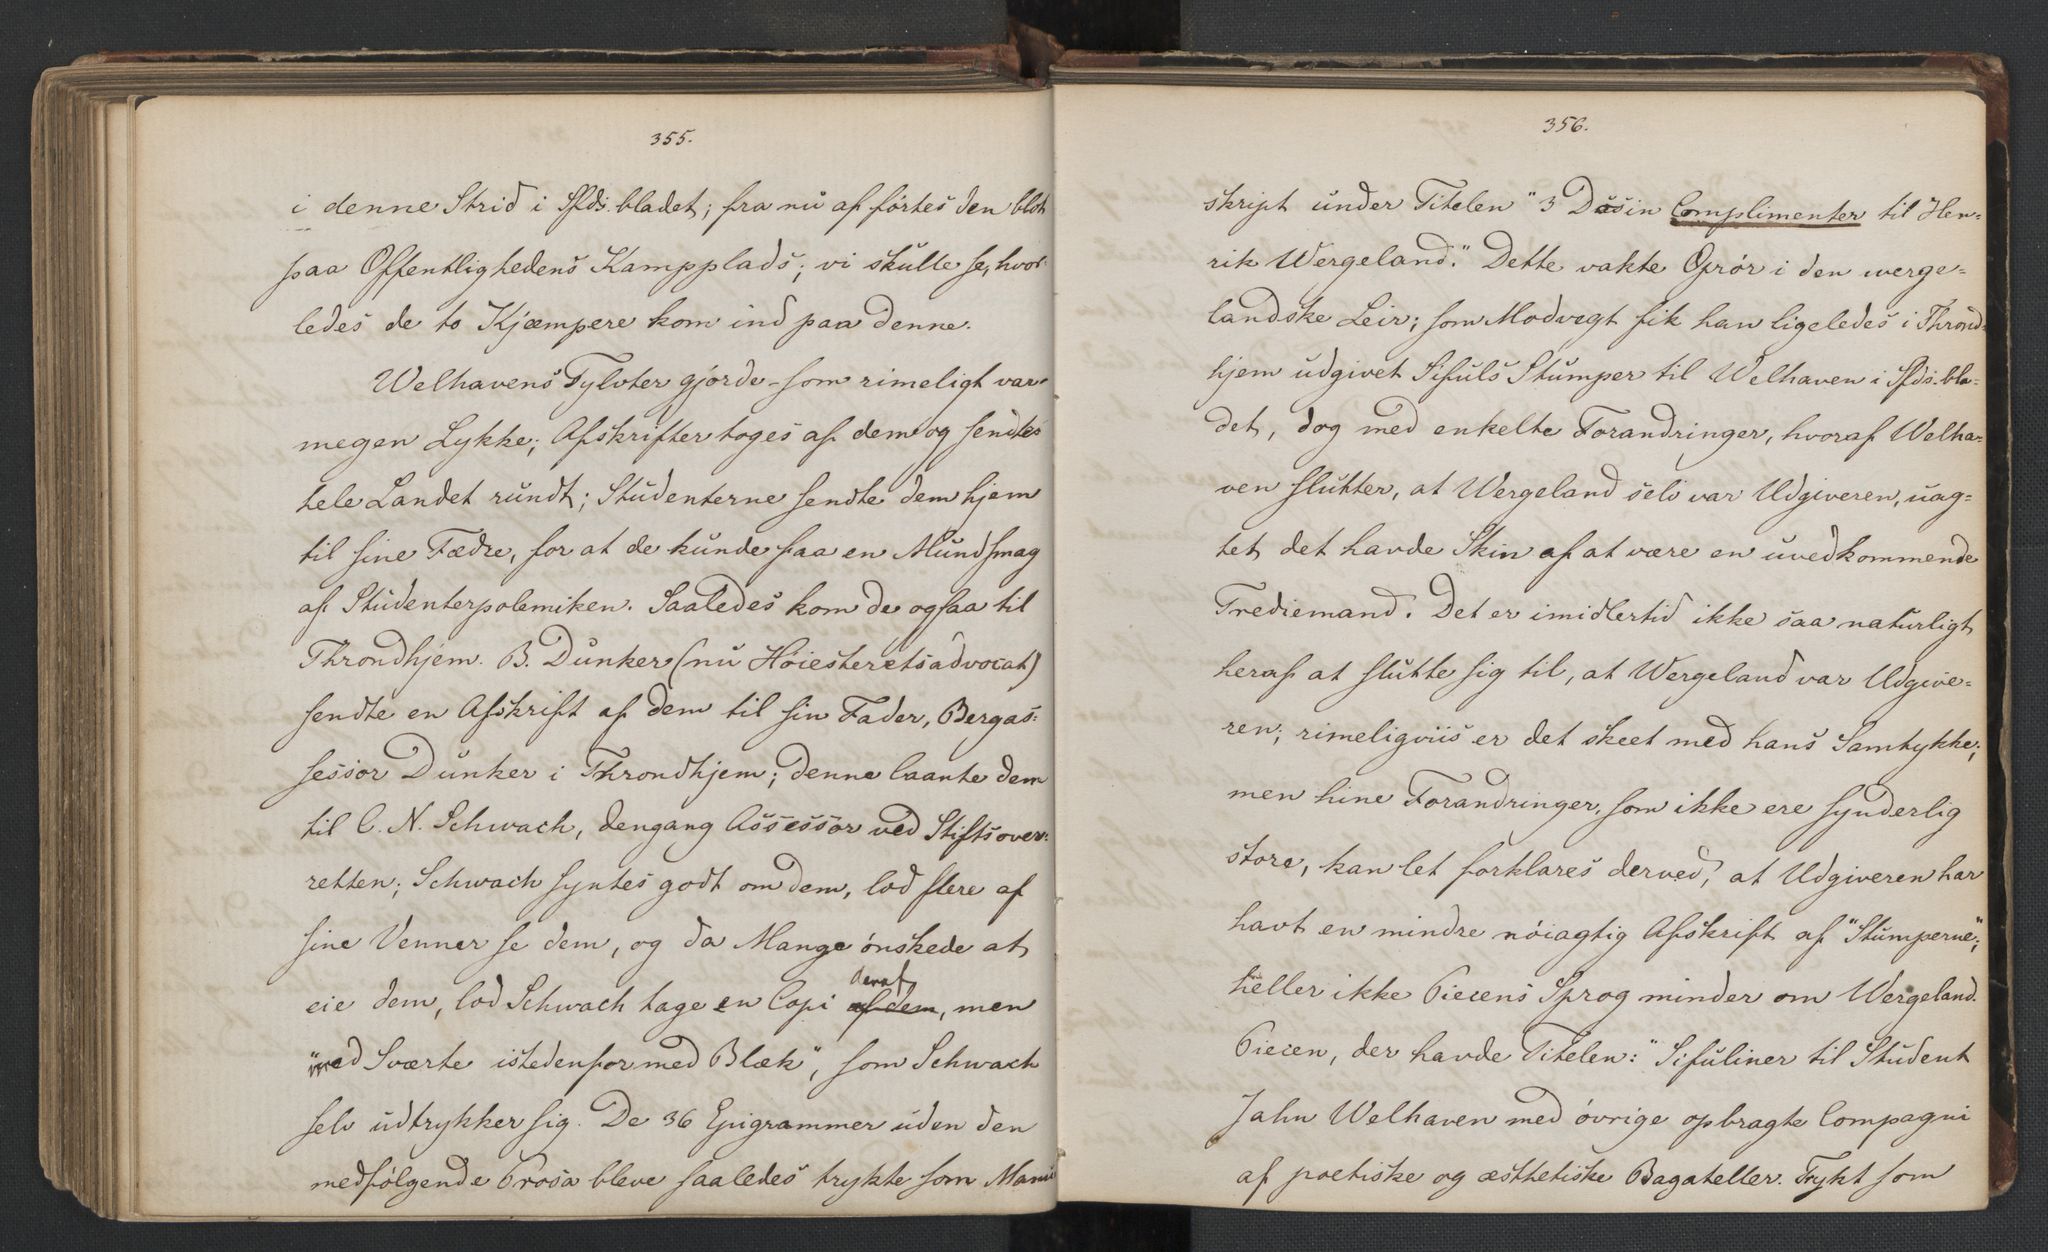 355.
i denne Strid i Sfds. bladet; fra nu af førtes den blot
paa Offentlighedens Kampplads; vi skulle se, hvor-
ledes de to Kjæmpere kom ind paa denne.
Welhavens Tylvter gjorde - som rimeligt var -
megen Lykke; Afskrifter toges af dem og sendtes
hele Landet rundt; Studenterne sendte dem hjem
til sine Fædre, for at de kunde faa en Mundsmag
af Studenterpolemiken. Saaledes kom de ogsaa til
Throndhjem. B. Dunker (nu Høiesteretsadvocat)
sendte en Afskrift af dem til sin Fader, Bergas-
sessor Dunker i Throndhjem; denne laante dem
til C. N. Schwach, dengang Assessor ved Stiftsover-
retten; Schwach syntes godt om dem, lod flere af
sine Venner se dem, og da Mange ønskede at
eie dem, lod Schwach tage en Copi af dem deraf, men
"med Sværte istedenfor med Blæk", som Schwach
selv udtrykker sig. De 36 Epigrammer uden den
medfølgende Prosa bleve saaledes trykte som Manu-
356.
skript under Titelen "3 Dusin Complimenter til Hen-
rik Wergeland." Dette vakte Oprør i den werge-
landske Leir; som Modvegt fik han ligeledes i Thrond-
hjem udgivet Sifuls Stumper til Welhaven i Sfds. bla-
det, dog med enkelte Forandringer, hvoraf Welha-
ven slutter, at Wergeland selv var Udgiveren, uag-
tet det havde Skin af at være en uvedkommende
Trediemand. Det er imidlertid ikke saa naturligt
heraf at slutte sig til, at Wergeland var Udgive-
ren; rimeligviis er det skeet med hans Samtykke;
men hine Forandringer, som ikke ere synderlig
store, kan let forklares derved, at Udgiveren har
havt en mindre nøiagtig Afskrift af "Stumperne";
heller ikke Piecens Sprog minder om Wergeland.
Piecen, der havde Titelen: "Sifuliner til Student
Jahn Welhaven med øvrige opbragte Compagni
af poetiske og æsthetiske Bagateller. Trykt som